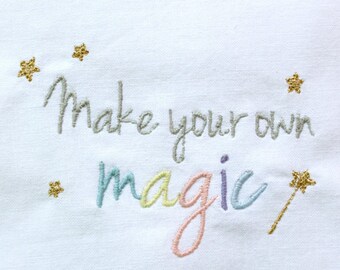 Make your own
magic